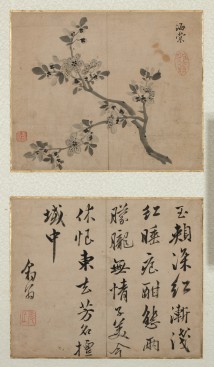 海棠
玉頰深紅漸淺
紅睡痕酣態兩
朦朧無情子美今
休恨東去芳名擅
域中